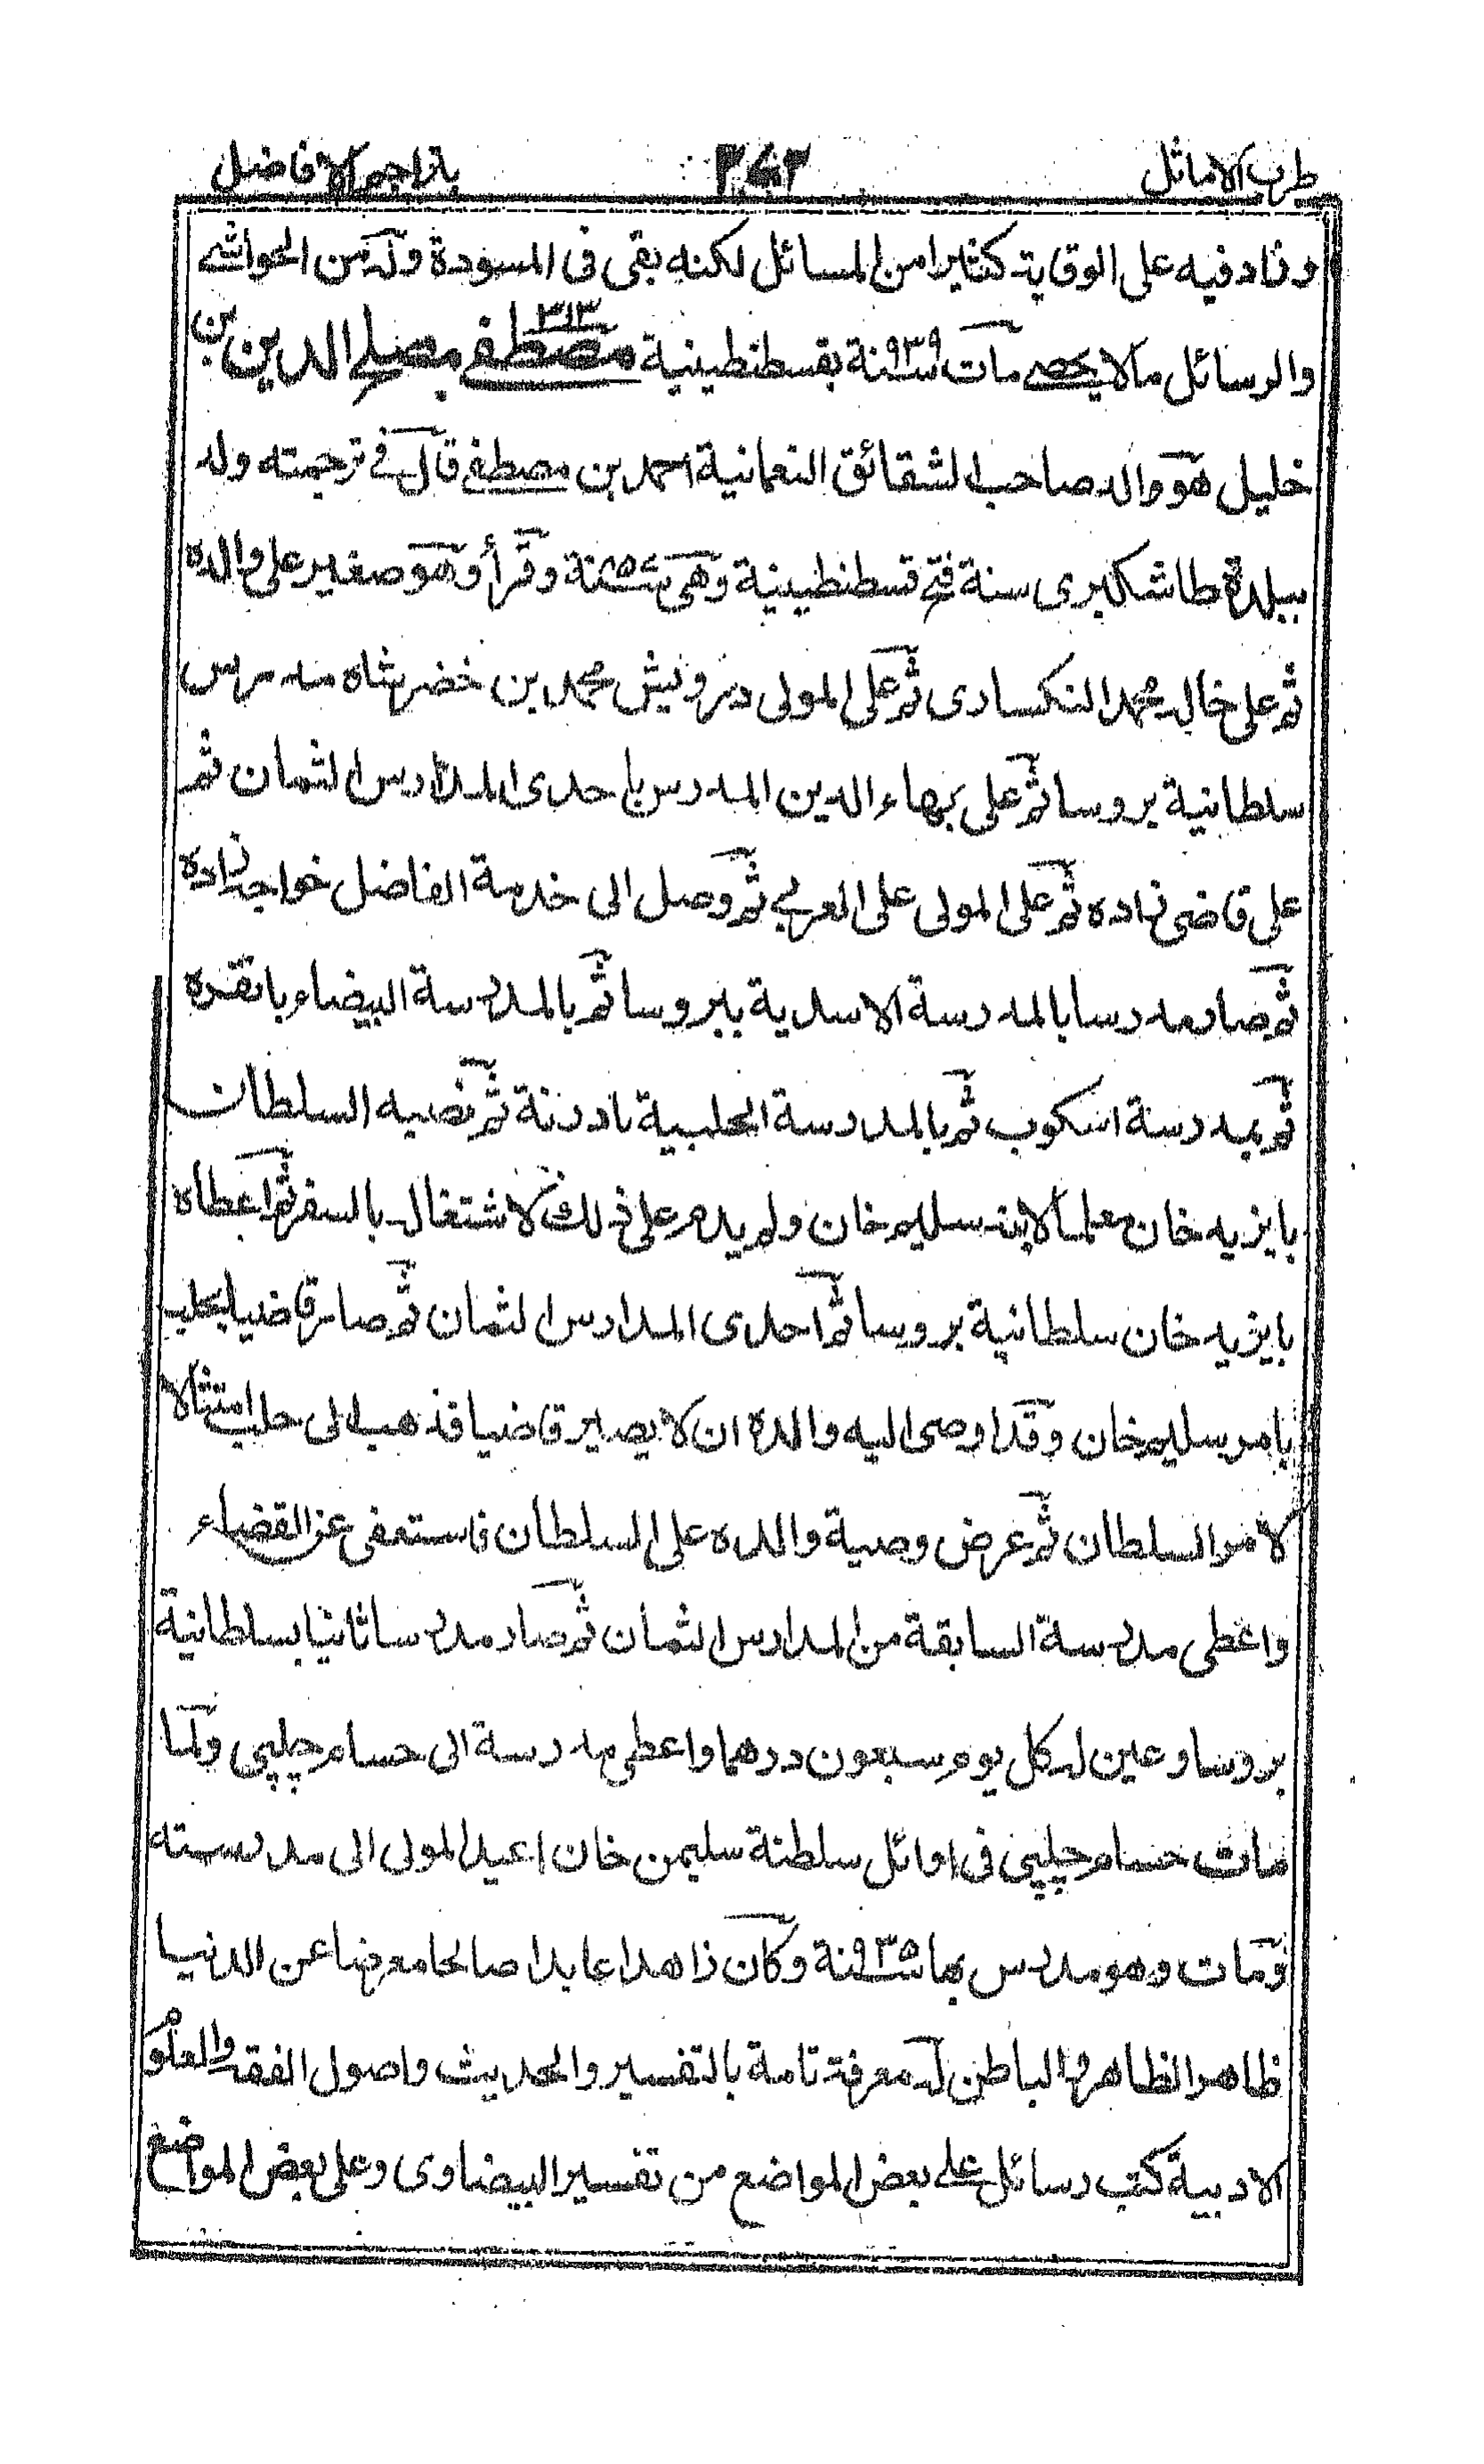 طرب الاماثل
بتراجم الافاضل
وزاد فيه على الوقاية كثيرا من المسائل لكنه بقى فى المسودة وله من الحواشے
والرسائل مالا يحصے مات ۹۳۹ سنة بقسطنطينية مصطفے مصلح الدين بن
خليل هو والد صاحب الشقائق النعمانية احمد بن مصطفے قال فے ترجمته ولد
ببلدة طاشكبرى سنة فتح قسطنطينية وهى سنة وقرأ وهو صغير على والده
ثم على خاله محمد النكسارى ثم على المولى درويش محمد بن خضر شاه مدرس
سلطانية بروسا ثم على بهاء الدين المدرس باحدى المدارس الثمان ثم
على قاضى زاده ثم على المولى على العربے ثم وصل الى خدمة الفاضل خواجه زاده
ثم صار مدرسا بالمدرسة الاسدية ببروسا ثم بالمدرسة البيضاء بانقره
ثم بمدرسة اسكوب ثم بالمدرسة الحلبية بادرنة ثم نصبه السلطان
بايزيد خان معلما لابنه سليم خان ولم يدم على ذلك لاشتغال بالسفر ثم اعطاه
بايزيد خان سلطانية بروسا ثم احدى المدارس الثمان ثم صار قاضيا بحلب
بامر سليم خان وقد اوصى اليه والده ان لا يصير قاضيا فذهب الى حلب امتثالا
لامر السلطان ثم عرض وصية والده على السلطان فاستعفى عن القضاء
واعطى مدرسة السابقة من المدارس الثمان ثم صار مدرسا ثانيا بسلطانية
بروسا وعين له كل يوم سبعون درهما واعطى مدرسة الى حسام چلپى ولما
مات حسام چلپى فى اوائل سلطنة سليمن خان اعيد المولى الى مدرسته
ومات وهو مدرس بها ۹۳۵ سنة وكان زاهدا عابدا صالحا معرضا عن الدنيا
ظاهر الظاهر والباطن له معرفة تامة بالتفسير والحديث واصول الفقه والعلوم
الادبية كتب رسائل علے بعض المواضع من تفسير البيضاوى وعلى بعض المواضع